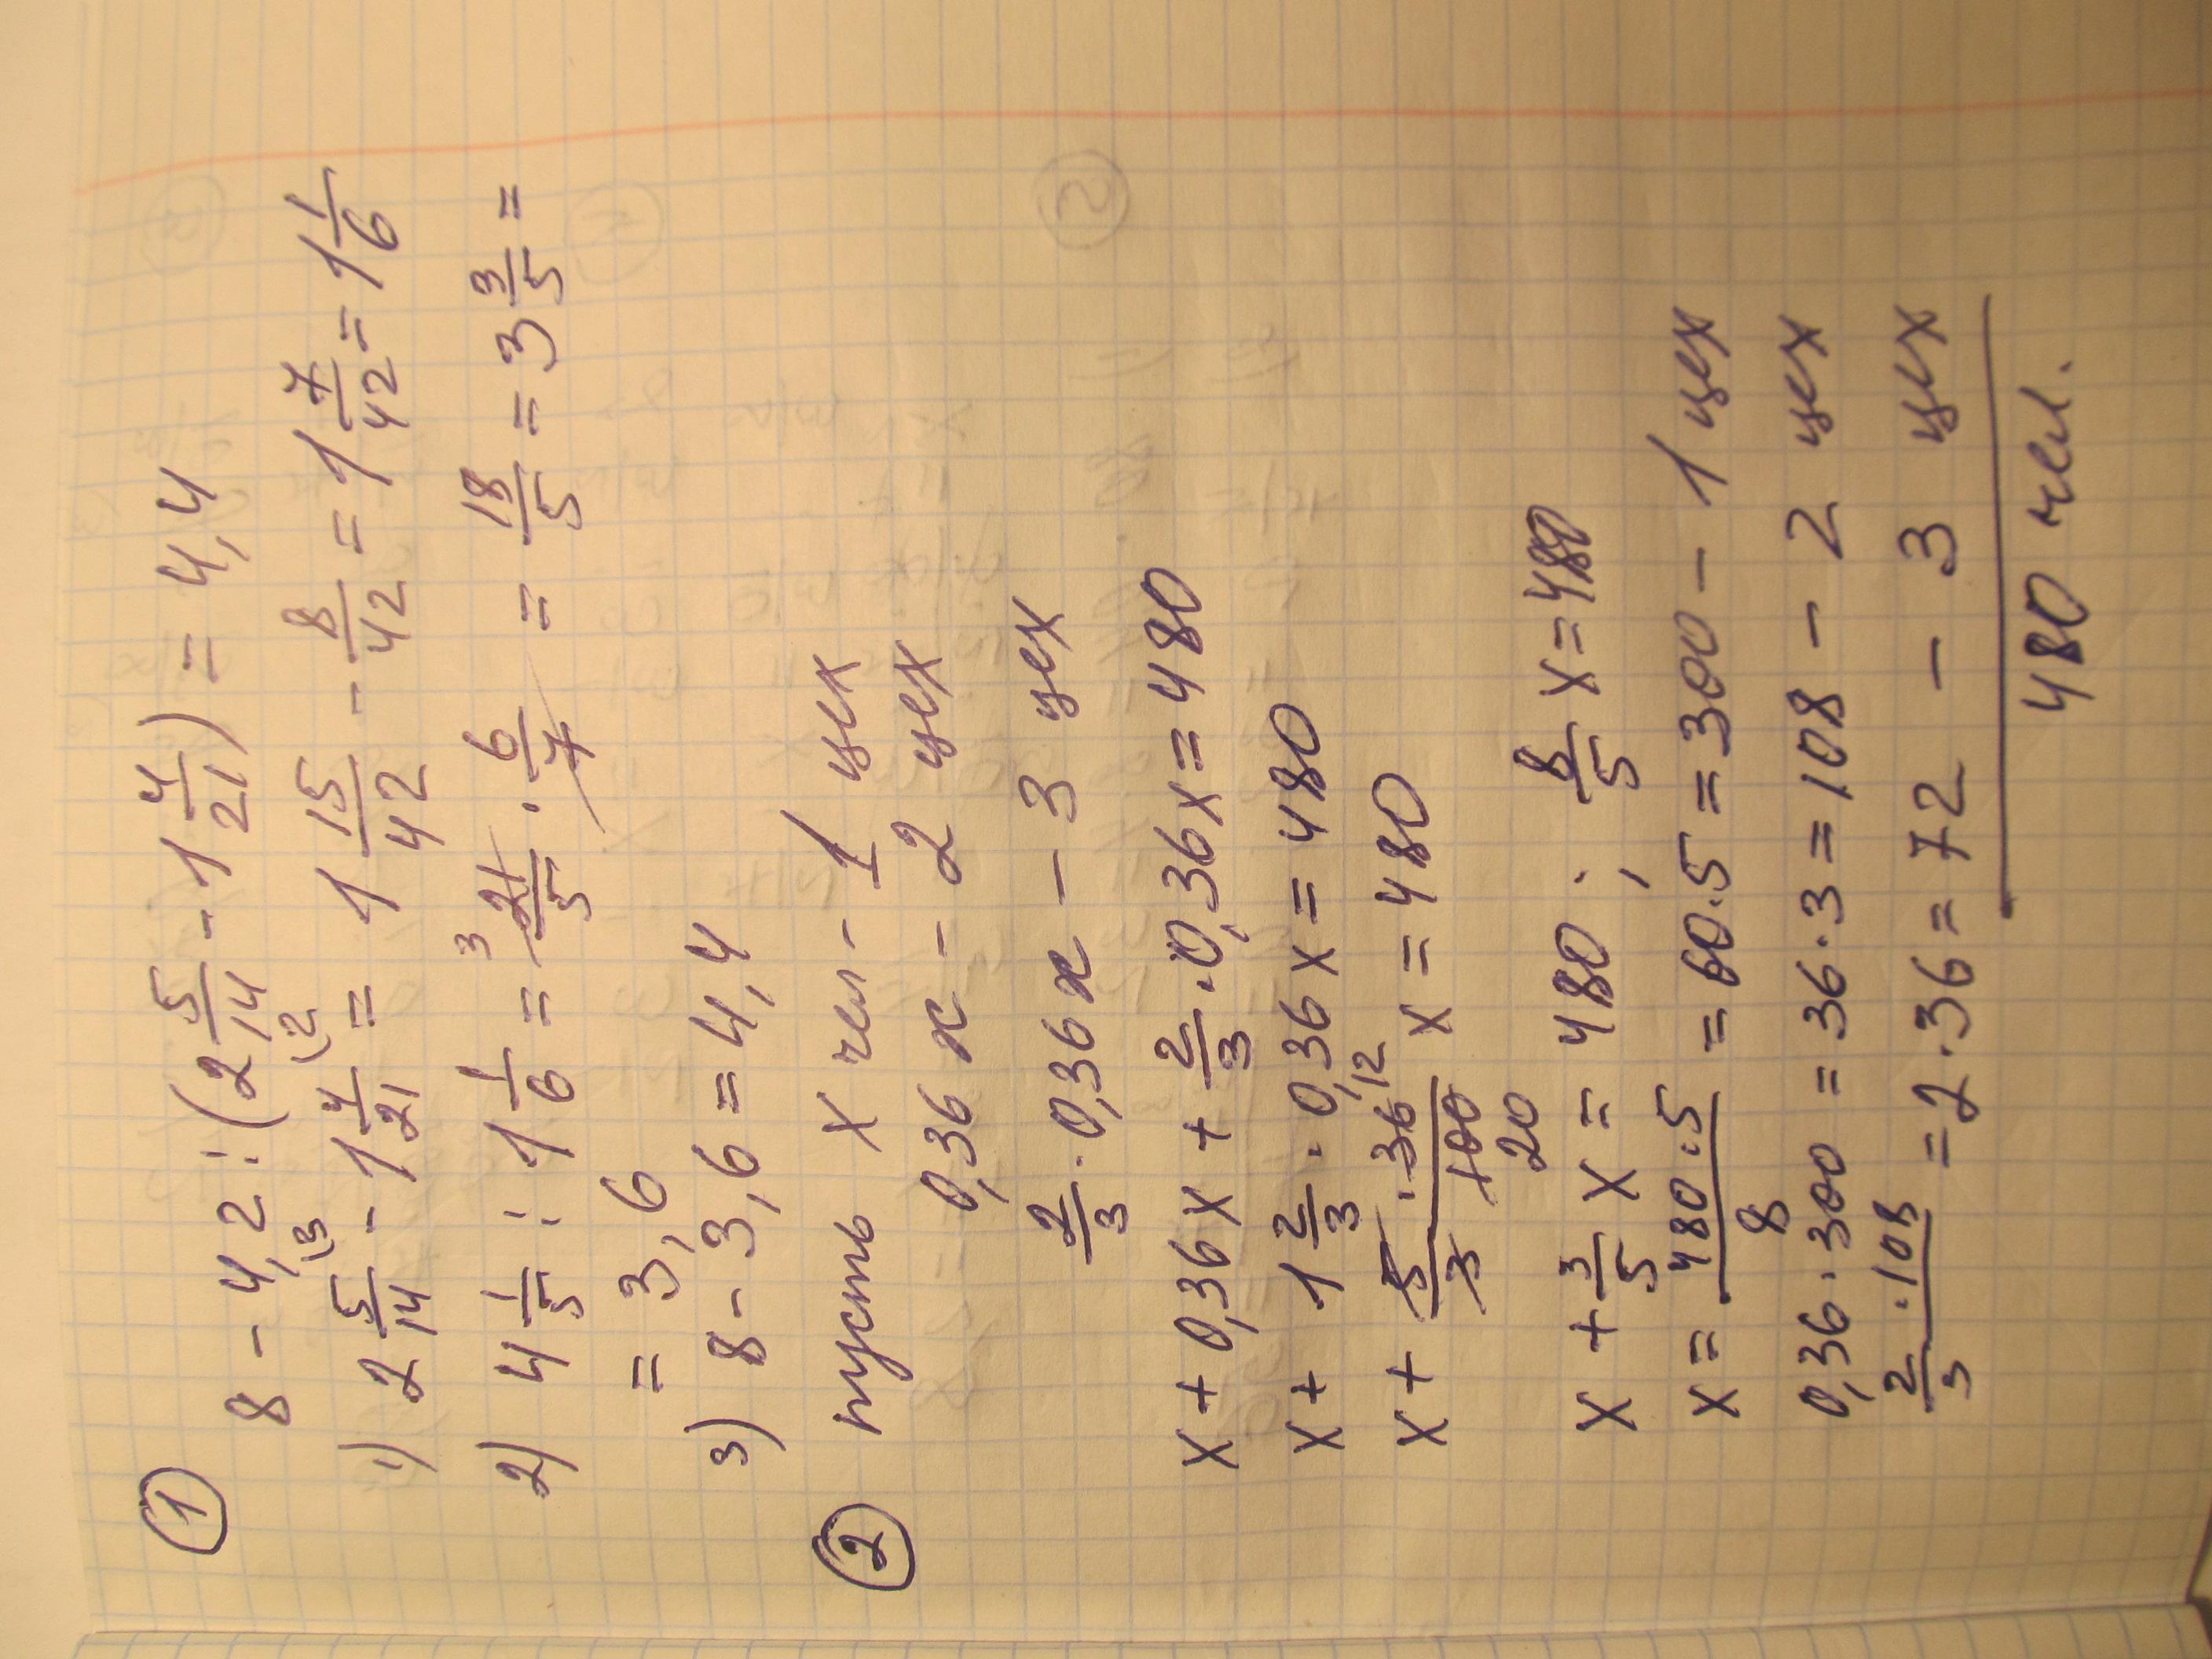 ① 8 - 4,2 : (2 5/14 - 1 4/21) = 4,4
1) 2 5/14 \3 - 1 4/21 \2 = 1 15/42 - 8/42 = 1 7/42 = 1 1/6
2) 4 1/5 : 1 1/6 = 21/5 3 · 6/7 = 18/5 = 3 3/5 =
= 3,6
3) 8 - 3,6 = 4,4
② пусть x чел - 1 цех
0,36 x - 2 цех
2/3 · 0,36 x - 3 цех
x + 0,36 x + 2/3 · 0,36 x = 480
x + 1 2/3 · 0,36 x = 480
x + 5/3 · 36 12/100 20 x = 480
x + 3/5 x = 480 ; 8/5 x = 480
x = 480·5/8 = 60·5 = 300 - 1 цех
0,36 · 300 = 36·3 = 108 - 2 цех
2/3 · 108 = 2·36 = 72 - 3 цех
480 чел.